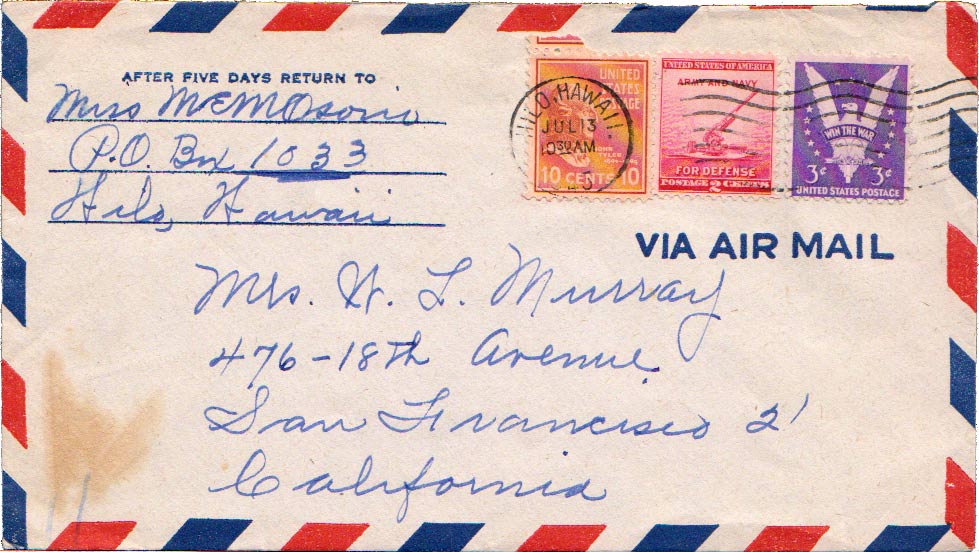 AFTER FIVE DAYS RETURN TO
Miss M E M Osorio
P.O. Box 1033
Hilo, Hawaii
HILO, HAWAII.
JUL 13
10 30 AM
UNITED
STATES
POSTAGE
JOHN
TYLER
10 CENTS 10
UNITED STATES OF AMERICA
ARMY AND NAVY
FOR DEFENSE
POSTAGE 2 CENTS
WIN THE WAR
3¢ 3¢
UNITED STATES POSTAGE
VIA AIR MAIL
Mrs. W. L. Murray
476-18th Avenue
San Francisco 21
California